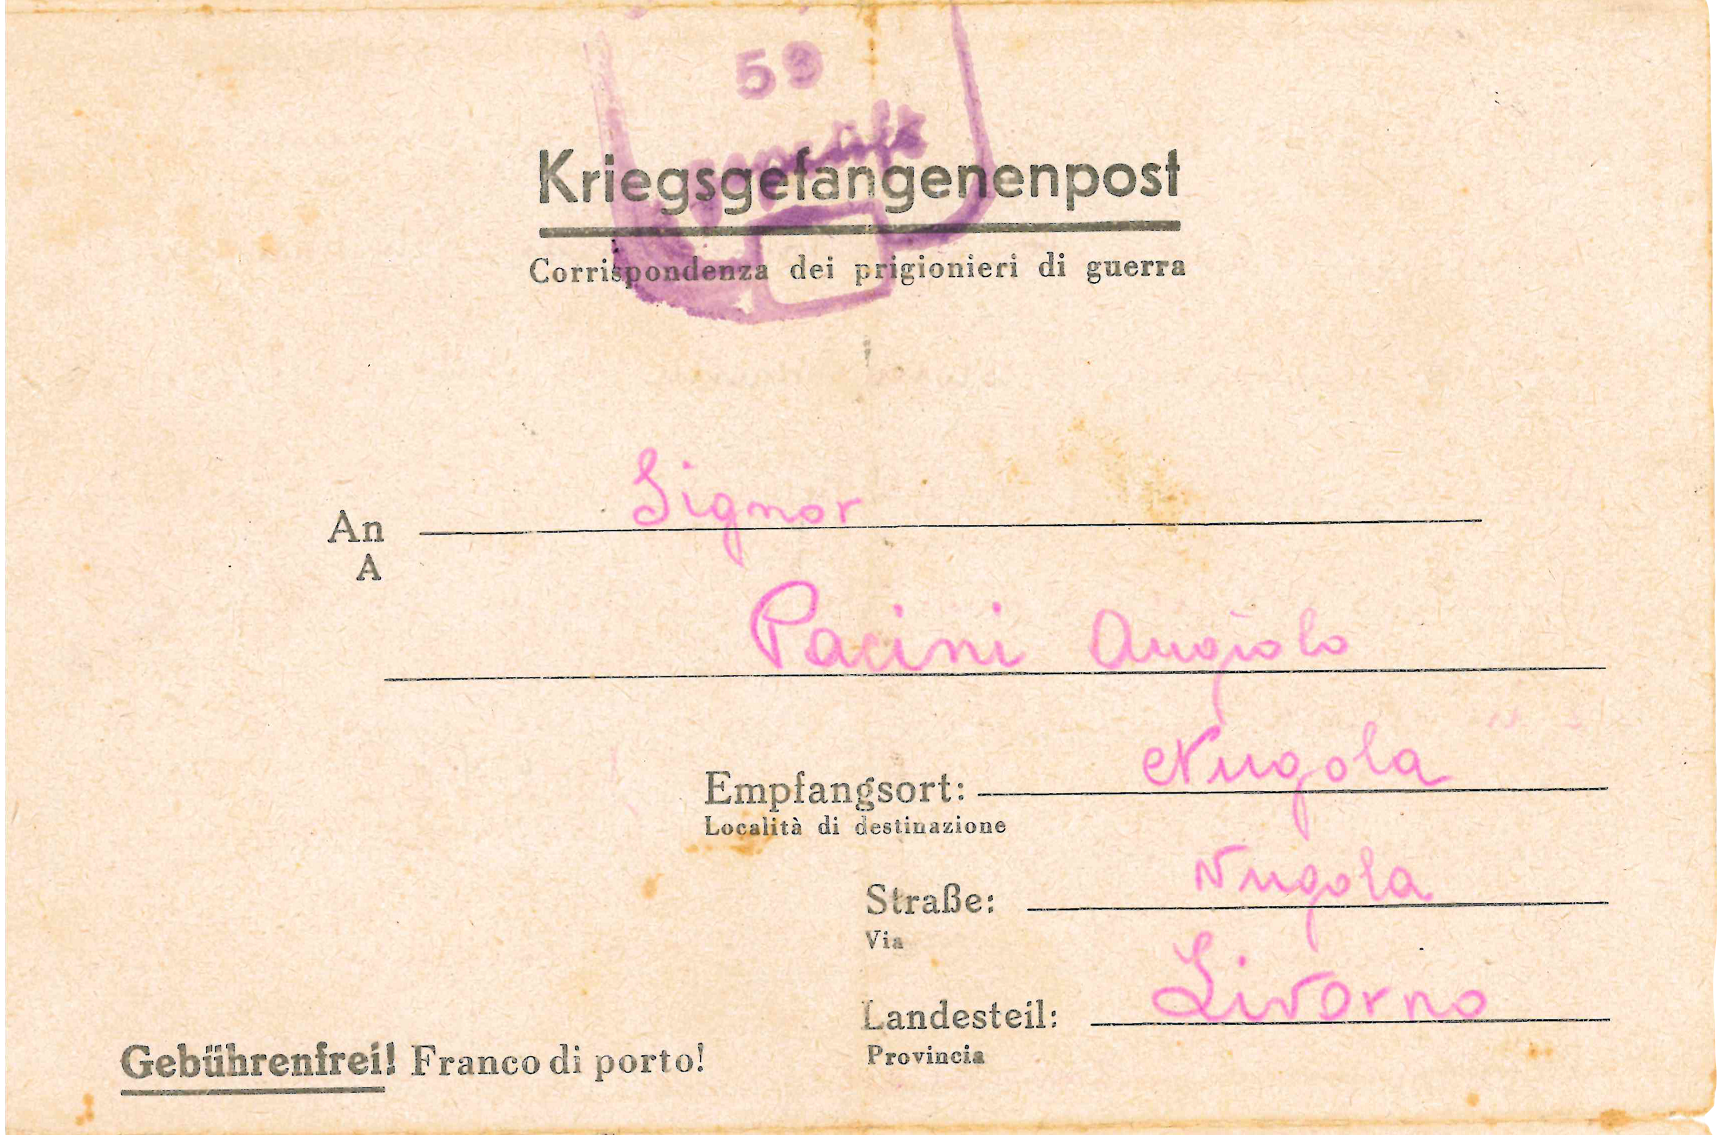 59
geprüft
Kriegsgefangenenpost
Corrispondenza dei prigionieri di guerra
An Signor
A
Pacini Angiolo
Empfangsort: Nugola
Località di destinazione
Straße: Nugola
Via
Landesteil: Livorno
Provincia
Gebührenfrei! Franco di porto!